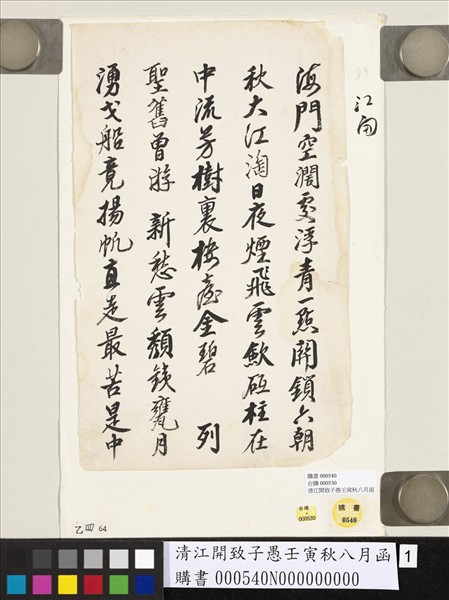 89
江開
海門空濶處浮青一點閒鎖六朝
秋大江淘日夜煙飛雲歛砥柱在
中流芳樹裏樓臺金碧 列
聖舊曾游 新愁雲頹銕甕月
湧戈船竟揚帆直走最苦是中
購書 000540
台購 000530
清江開致子愚壬寅秋八月函
台購
000530
購書
0540
乙四 64
清江開致子愚壬寅秋八月函
購書 000540N000000000
1